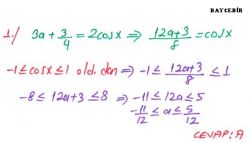 BAYCEBİR
1/ 3a + 3/4 = 2cosx ⇒ (12a+3)/8 = cosx
-1 ≤ cosx ≤ 1 old.dan ⇒ -1 ≤ (12a+3)/8 ≤ 1
-8 ≤ 12a+3 ≤ 8 ⇒ -11 ≤ 12a ≤ 5
-11/12 ≤ a ≤ 5/12
CEVAP: A